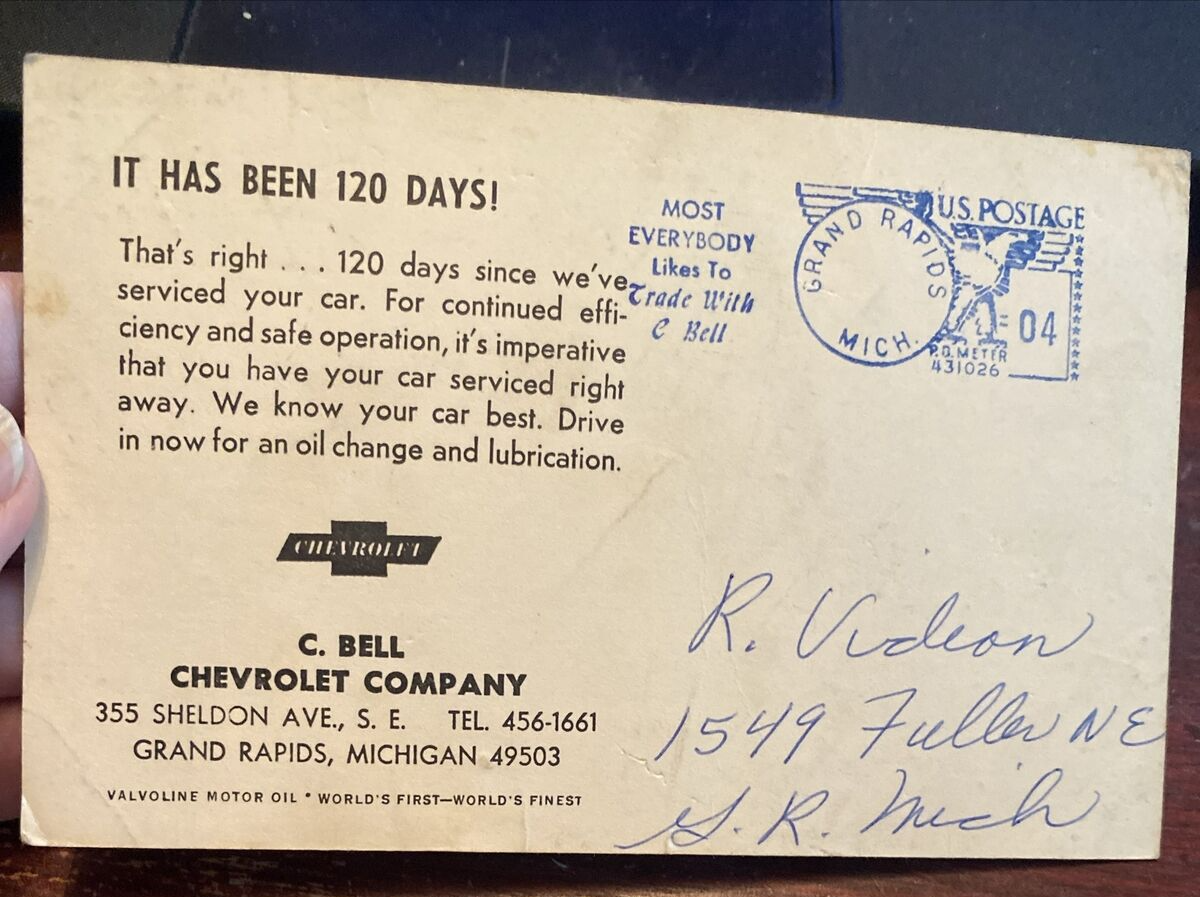 IT HAS BEEN 120 DAYS!
That's right . . . 120 days since we've
serviced your car. For continued effi-
ciency and safe operation, it's imperative
that you have your car serviced right
away. We know your car best. Drive
in now for an oil change and lubrication.
CHEVROLET
C. BELL
CHEVROLET COMPANY
355 SHELDON AVE., S. E. TEL. 456-1661
GRAND RAPIDS, MICHIGAN 49503
VALVOLINE MOTOR OIL * WORLD'S FIRST—WORLD'S FINEST
MOST
EVERYBODY
Likes To
Trade With
C Bell
GRAND RAPIDS
MICH.
U.S. POSTAGE
04
P.O. METER
431026
R. Videon
1549 Fuller NE
G. R. Mich